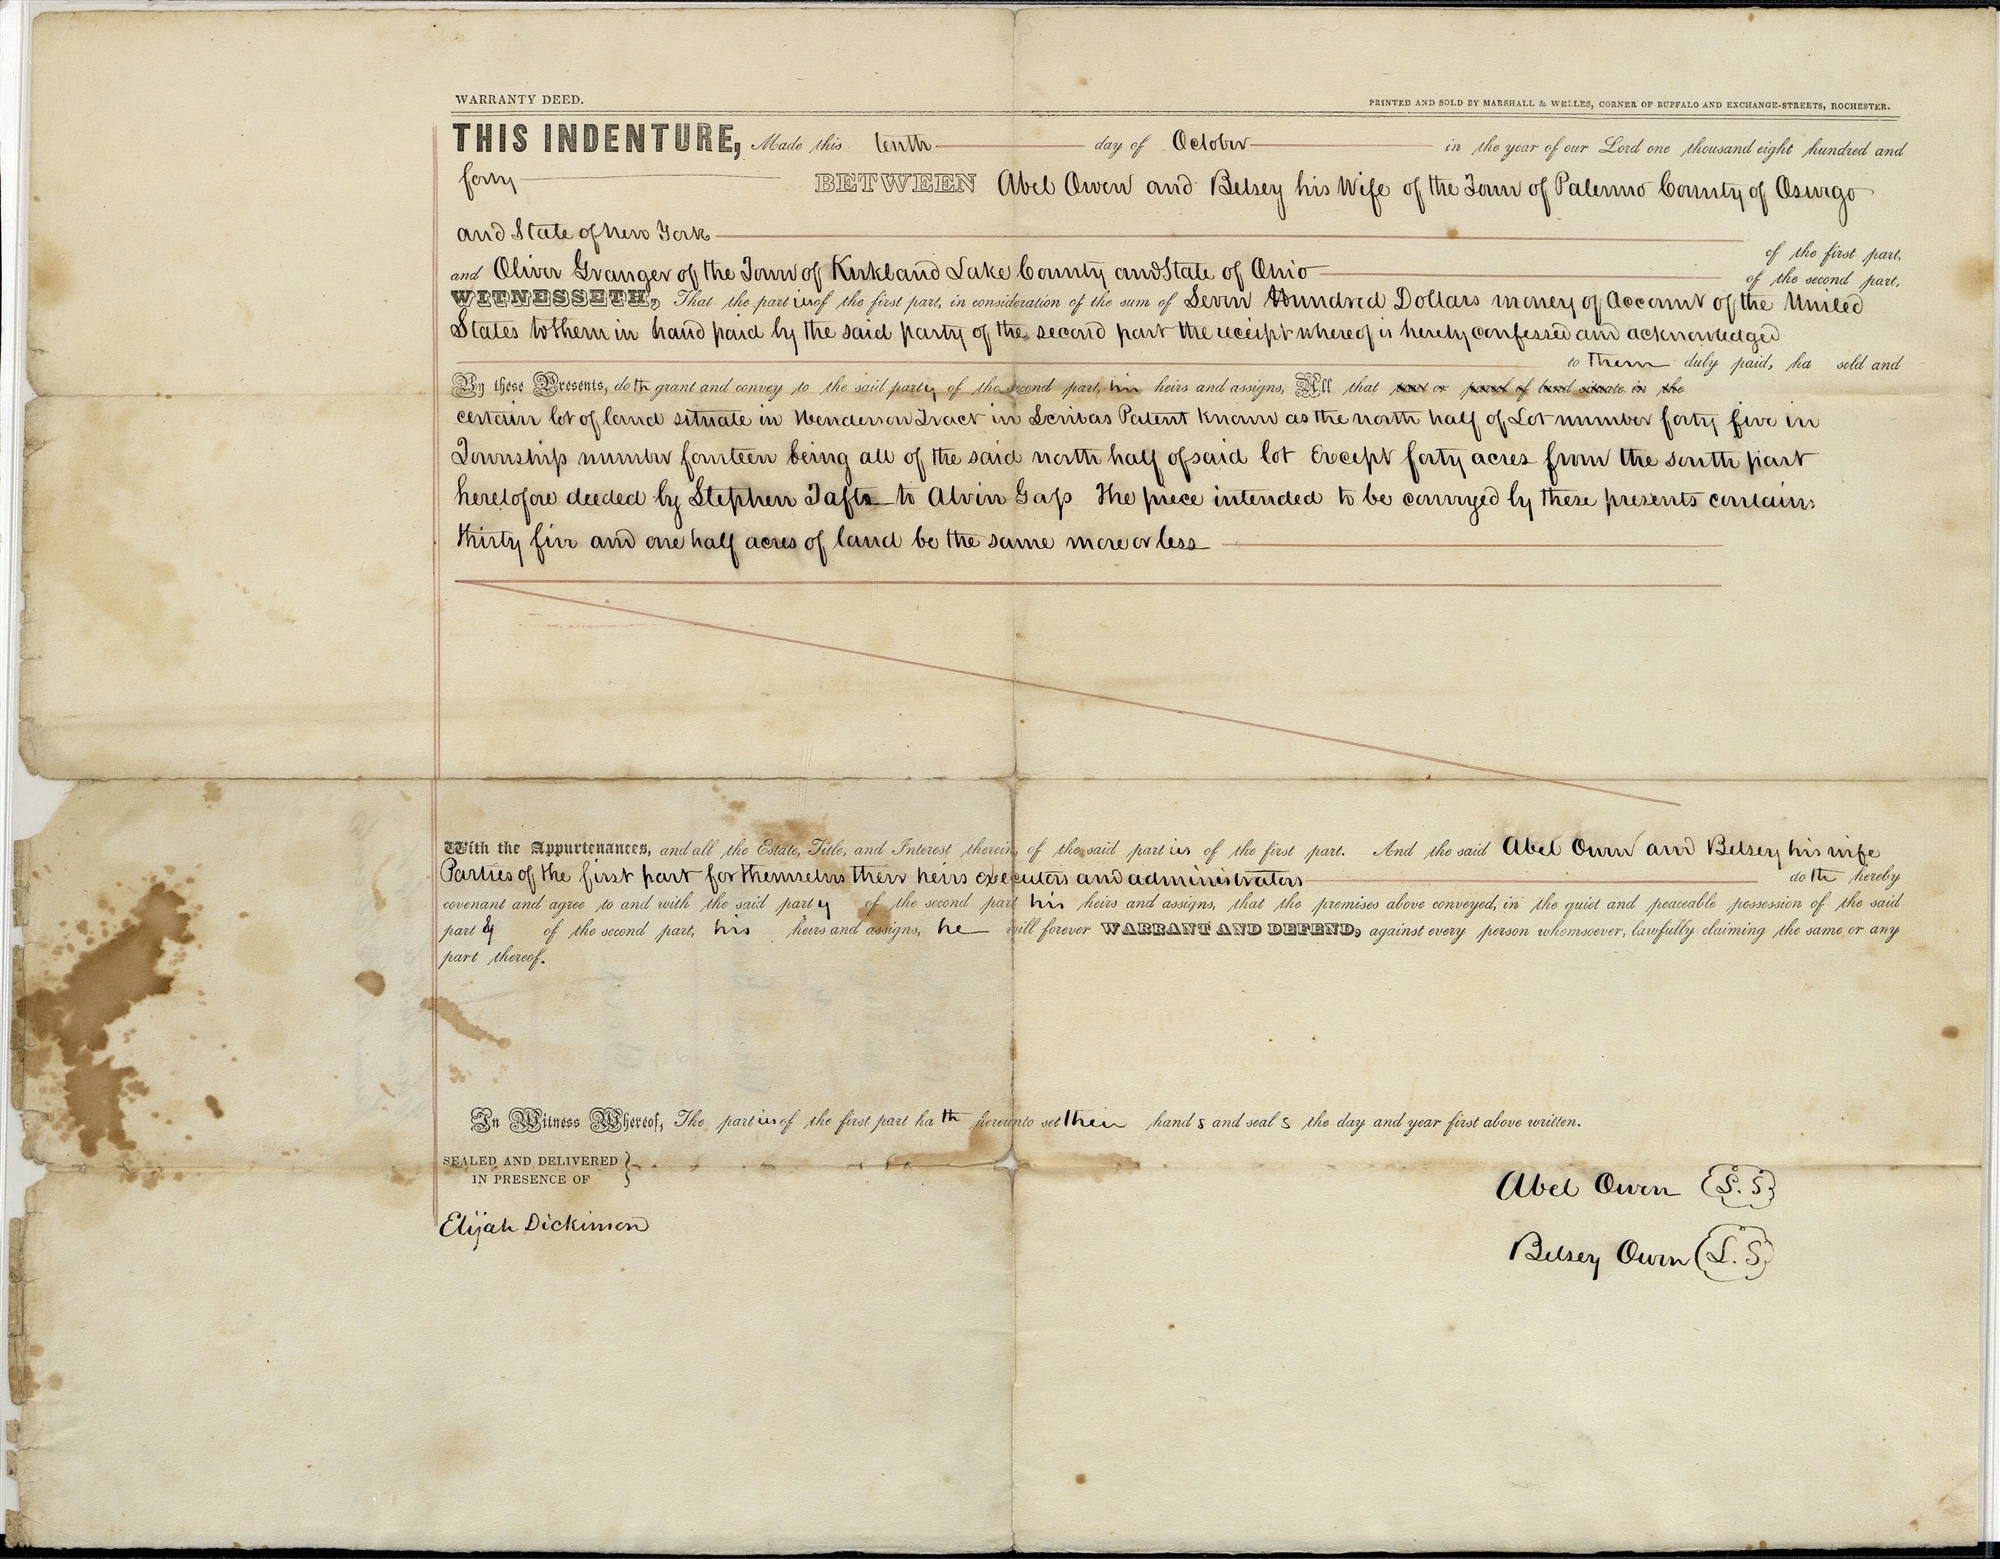 WARRANTY DEED. PRINTED AND SOLD BY MARSHALL & WELLES, CORNER OF BUFFALO AND EXCHANGE-STREETS, ROCHESTER.
THIS INDENTURE, Made this tenth day of October in the year of our Lord one thousand eight hundred and
forty BETWEEN Abel Owen and Betsey his Wife of the Town of Palermo County of Oswego
and State of New York
of the first part,
and Oliver Granger of the Town of Kirkland Lake County and State of Ohio
of the second part,
WITNESSETH, That the parties of the first part, in consideration of the sum of Seven Hundred Dollars money of Account of the United
States to them in hand paid by the said party of the second part the receipt whereof is hereby confessed and acknowledged
to them duly paid, ha sold and
By these Presents, doth grant and convey to the said party of the second part, his heirs and assigns, All that tract or parcel of land situate in the
certain lot of land situate in Henderson Tract in Scribas Patent known as the north half of Lot number forty five in
Township number fourteen being all of the said north half of said lot Except forty acres from the south part
heretofore deeded by Stephen Tafts to Alvin Gass The piece intended to be conveyed by these presents contains
thirty five and one half acres of land be the same more or less
With the Appurtenances, and all the Estate, Title, and Interest therein, of the said parties of the first part. And the said Abel Owen and Betsey his wife
Parties of the first part for themselves their heirs executors and administrators doth hereby
covenant and agree to and with the said party of the second part his heirs and assigns, that the premises above conveyed, in the quiet and peaceable possession of the said
party of the second part, his heirs and assigns, he will forever WARRANT AND DEFEND, against every person whomsoever, lawfully claiming the same or any
part thereof.
In Witness Whereof, The parties of the first part hath hereunto set their hands and seals the day and year first above written.
SEALED AND DELIVERED
IN PRESENCE OF
Abel Owen L.S.
Elijah Dickinson
Betsey Owen L.S.